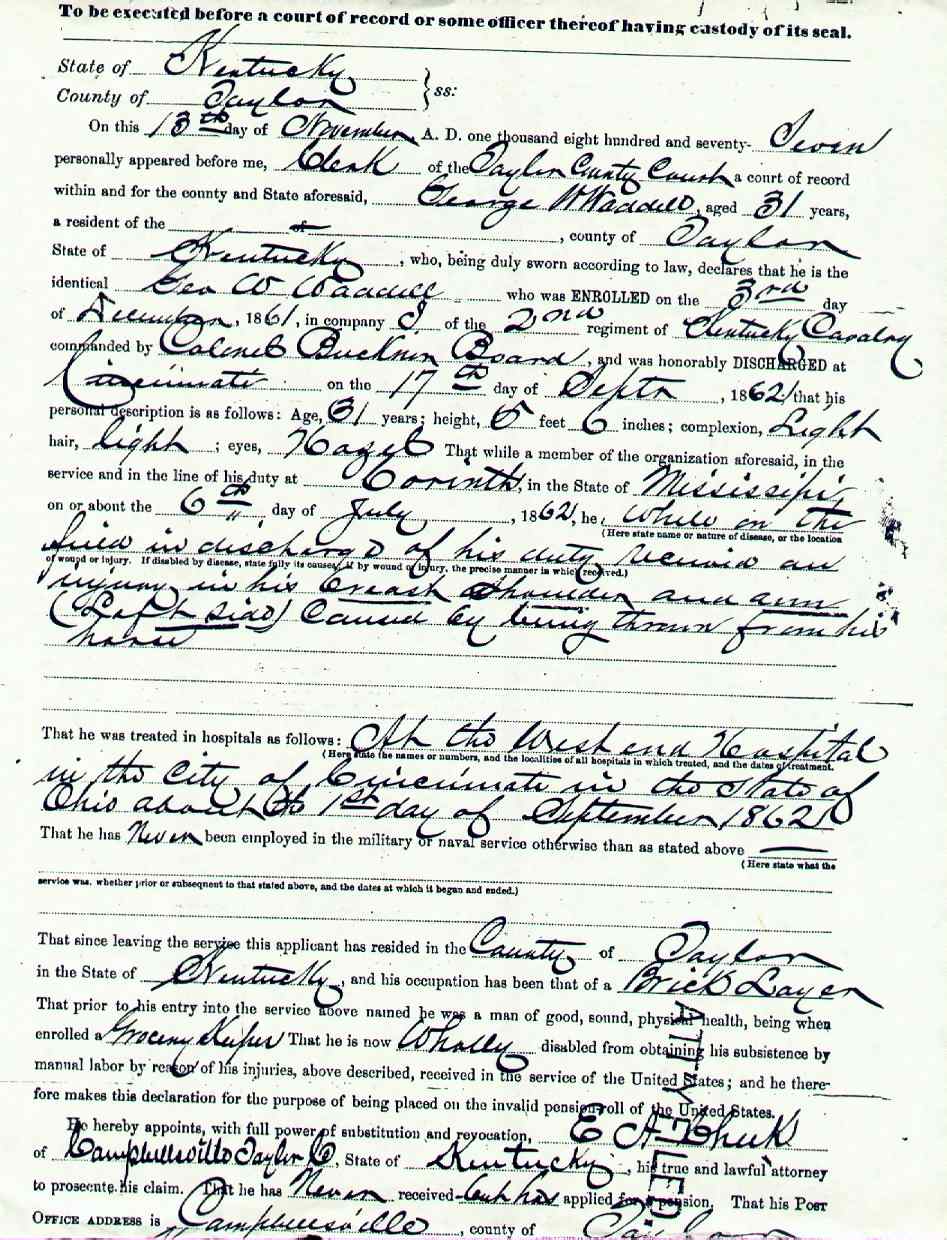 To be executed before a court of record or some officer thereof having custody of its seal.
State of Kentucky
County of Taylor } ss:
On this 13th day of November A. D. one thousand eight hundred and seventy- Seven
personally appeared before me, Clerk of the Taylor County Court a court of record
within and for the county and State aforesaid, George W Waddell, aged 31 years,
a resident of the of , county of Taylor
State of Kentucky, who, being duly sworn according to law, declares that he is the
identical Geo W Waddell who was ENROLLED on the 3rd day
of December, 1861, in company of the 2nd regiment of Kentucky Cavalry
commanded by Colonel Buckner Board, and was honorably DISCHARGED at
Cincinnati on the 17th day of Septr, 1862; that his
personal description is as follows: Age, 31 years; height, 5 feet 6 inches; complexion, Light
hair, light; eyes, Hazel That while a member of the organization aforesaid, in the
service and in the line of his duty at Corinth, in the State of Mississippi,
on or about the 6th day of July, 1862, he, While in the
(Here state name or nature of disease, or the location
field in discharge of his duty received an
of wound or injury. If disabled by disease, state fully its causes; if by wound or injury, the precise manner in which received.)
injury in his breast shoulder and arm
(Left side) Caused by being thrown from his
horse
That he was treated in hospitals as follows: At the West end Hospital
(Here state the names or numbers, and the localities of all hospitals in which treated, and the dates of treatment.
in the City of Cincinnati in the State of
Ohio about the 1st day of September 1862
That he has Never been employed in the military or naval service otherwise than as stated above
(Here state what the
service was, whether prior or subsequent to that stated above, and the dates at which it began and ended.)
That since leaving the service this applicant has resided in the County of Taylor
in the State of Kentucky, and his occupation has been that of a Brick Layer
That prior to his entry into the service above named he was a man of good, sound, physical health, being when
enrolled a Grocery Keeper That he is now Wholly disabled from obtaining his subsistence by
manual labor by reason of his injuries, above described, received in the service of the United States; and he there-
fore makes this declaration for the purpose of being placed on the invalid pension-roll of the United States.
He hereby appoints, with full power of substitution and revocation, E A
of Campbellsville Taylor Co, State of Kentucky, his true and lawful attorney
to prosecute his claim. That he has Never received but has applied for a pension. That his POST
OFFICE ADDRESS is Campbellsville, county of Taylor